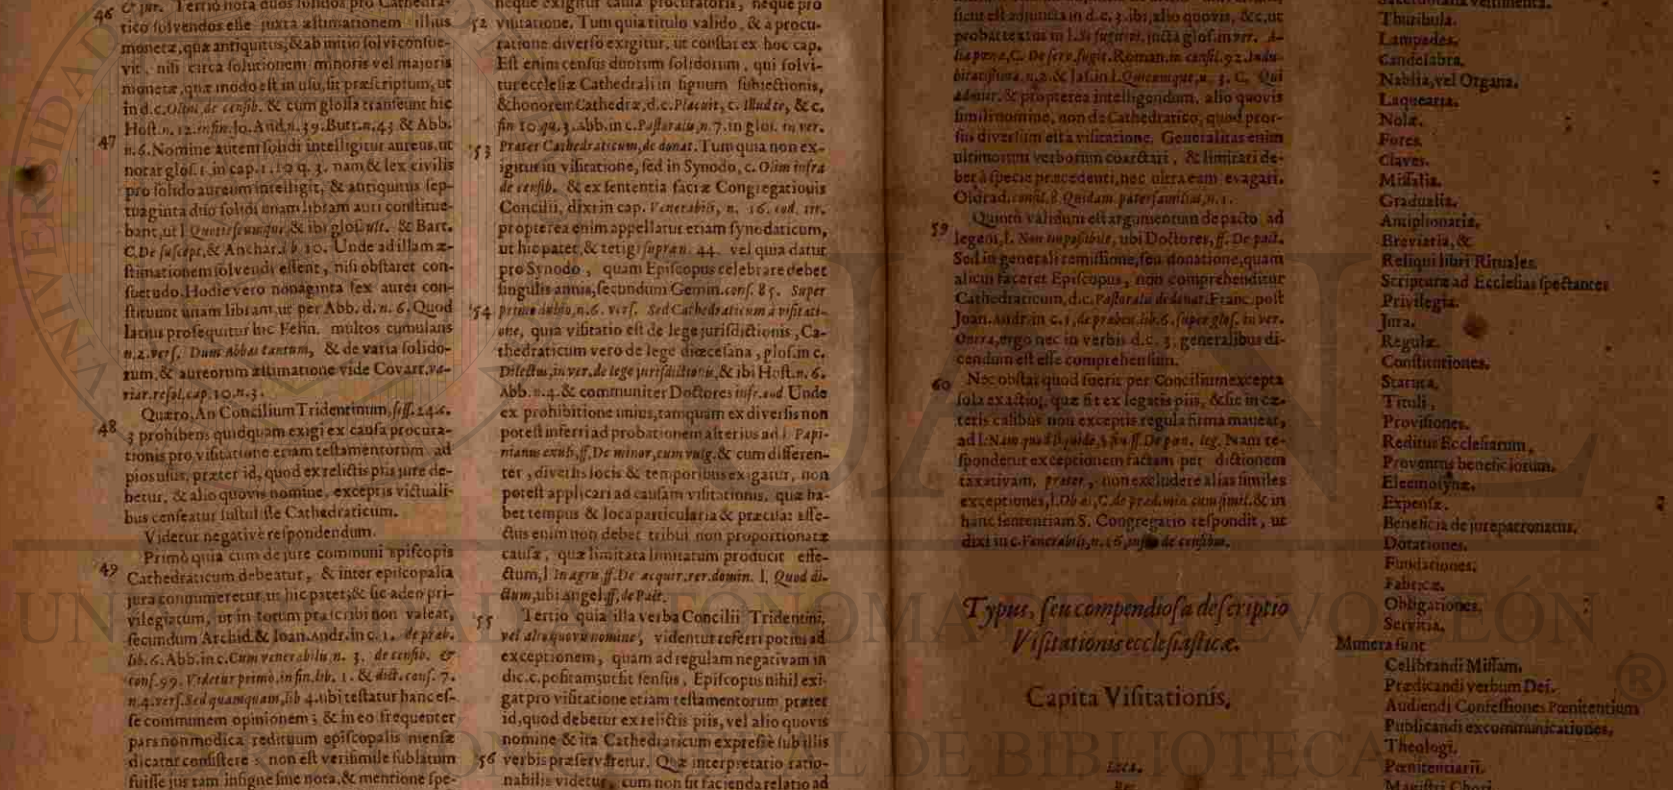 46 & jur. Tertiò nota duos solidos pro Cathedra-
tico solvendos esse juxta æstimationem illius
monetæ, quæ antiquitus, & ab initio solvi consue-
vit, nisi circa solutionem minoris vel majoris
monetæ, quæ modo est in usu, sit præscriptum, ut
in d.c. Olim de censib. & cum glossa transeunt hic
Host. n. 12. in fin. Jo. And. n. 39. Butr. n. 43 & Abb.
47 n. 6. Nomine autem solidi intelligitur aureus, ut
notat glos. 1. in cap. 1. 10 q. 3. nam & lex civilis
pro solido aureum intelligit, & antiquitus sep-
tuaginta duo solidi unam libram auri constitue-
bant, ut l Quotiescumque, & ibi glos. ult. & Bart.
C. De suscept, & Anchar. l b. 10. Unde ad illam æ-
stimationem solvendi essent, nisi obstaret con-
suetudo. Hodie vero nonaginta sex aurei con-
stituunt unam libram, ut per Abb. d. n. 6. Quod
latius prosequitur hic Felin. multos cumulans
n. 2. vers. Dum Abbas tantum, & de varia solido-
rum, & aureorum æstimatione vide Covarr. va-
riar. resol. cap. 10. n. 3.
Quæro, An Concilium Tridentinum, sess. 24. c.
48 3 prohibens quidquam exigi ex causa procura-
tionis pro visitatione etiam testamentorum ad
pios usus, præter id, quod ex relictis piis jure de-
betur, & alio quovis nomine, exceptis victuali-
bus censeatur sustulisse Cathedraticum.
Videtur negative respondendum.
Primò quia cum de jure communi episcopis
49 Cathedraticum debeatur, & inter episcopalia
jura connumeretur, ut hic patet; & sic adeo pri-
vilegiatum, ut in totum præscribi non valeat,
secundum Archid. & Ioan. Andr. in c. 1. de præb.
lib. 6. Abb. in c. Cum venerabilis, n. 3. de censib. &
cons. 99. Videtur primo, in fin. lib. 1. & dict. cons. 7.
n. 4. vers. Sed quamquam, lib 4. ubi testatur hanc es-
se communem opinionem; & in eo frequenter
pars non modica redituum episcopalis mensæ
dicatur consistere; non est verisimile sublatum
fuisse jus tam insigne sine nota, & mentione spe-
neque exigitur causa procuratoris, neque pro
52 visitatione. Tum quia titulo valido, & a procu-
ratione diverso exigitur, ut constat ex hoc cap.
Est enim census duorum solidorum, qui solvi-
tur ecclesiæ Cathedrali in signum subjectionis,
& honorem Cathedræ, d.c. Placuit, c. Illud te, & c.
fin 10. qu. 3. Abb. in c. Pastoralis, n. 7. in glos. in ver.
53 Præter Cathedraticum, de donat. Tum quia non ex-
igitur in visitatione, sed in Synodo, c. Olim infra
de censib. & ex sententia sacræ Congregationis
Concilii, dixi in cap. Venerabilis, n. 16. eod. tit.
propterea enim appellatur etiam synodaticum,
ut hic patet, & tetigi supra n. 44. vel quia datur
pro Synodo, quam Episcopus celebrare debet
singulis annis, secundum Gemin. cons. 85. Super
54 primo dubio, n. 6. vers. Sed Cathedraticum à visitati-
one, quia visitatio est de lege jurisdictionis, Ca-
thedraticum vero de lege diœcesana, glos. in c.
Dilectus, in ver. de lege jurisdictionis, & ibi Host. n. 6.
Abb. n. 4. & communiter Doctores infr. eod Unde
ex prohibitione unius, tamquam ex diversis non
potest inferri ad probationem alterius ad l. Papi-
nianus exuli, ff. De minor, cum vulg. & cum differen-
ter, diversis locis & temporibus exigatur, non
potest applicari ad causam visitationis, quæ ha-
bet tempus & loca particularia & præcisa: effe-
ctus enim non debet tribui non proportionatæ
causæ, quæ limitata limitatum producit effe-
ctum, l In agris, ff. De acquir. rer. domin. l. Quod di-
ctum, ubi Angel. ff, de Pact.
55 Tertio quia illa verba Concilii Tridentini,
vel alio quovis nomine, videntur referri potius ad
exceptionem, quam ad regulam negativam in
dic. c. positam; ut sit sensus, Episcopus nihil exi-
gat pro visitatione etiam testamentorum præter
id, quod debetur ex relictis piis, vel alio quovis
nomine & ita Cathedraticum expresse sub illis
56 verbis præservaretur. Quæ interpretatio ratio-
nabilis videtur, cum non sit facienda relatio ad
sicut est adjuncta in d.c. 3. ibi, alio quovis, &c, ut
probat textus in l. Si fugitivi, juncta glos. in ver. A-
lia pœna, C. De serv. fugit. Roman. in consil. 92. Indu-
bitatissima, n. 2. & Jas. in l. Quicumque, n. 3. C. Qui
admitt. & propterea intelligendum, alio quovis
simili nomine, non de Cathedratico, quod pror-
sus diversum est a visitatione. Generalitas enim
ultimorum verborum coarctari, & limitari de-
bet à specie præcedenti, nec ultra eam evagari.
Oldrad. consil. 8. Quidam paterfamilias, n. 1.
59 Quintò validum est argumentum de pacto ad
legem, l. Non impossibile, ubi Doctores, ff. De pact.
Sed in generali remissione, seu donatione, quam
alicui faceret Episcopus, non comprehenditur
Cathedraticum, d.c. Pastoralis de donat. Franc. post
Joan. Andr. in c. 1, de præben. lib. 6. super glos. in ver.
Onera, ergo nec in verbis d.c. 3. generalibus di-
cendum est esse comprehensum.
60 Nec obstat quod fuerit per Concilium excepta
sola exactio, quæ fit ex legatis piis, & sic in cæ-
teris casibus non exceptis regula firma maneat,
ad l. Nam quod liquide, § fin ff. De pen. leg. Nam re-
spondetur exceptionem factam per dictionem
taxativam, præter, non excludere alias similes
exceptiones, l. Ob es, C. de præd. min. cum simil. & in
hanc sententiam S. Congregatio respondit, ut
dixi in c. Venerabilis, n. 16, infra de censibus.
Typus, seu compendiosa descriptio
Visitationis ecclesiasticæ.
Capita Visitationis,
Loca.
Res
Sacerdotalia vestimenta.
Thuribula.
Lampades.
Candelabra.
Nablia, vel Organa.
Laquearia.
Nolæ.
Fores.
Claves.
Missalia.
Gradualia.
Antiphonaria.
Breviaria, &
Reliqui libri Rituales.
Scripturæ ad Ecclesias spectantes
Privilegia.
Jura.
Regulæ.
Constitutiones.
Statuta.
Tituli.
Provisiones.
Reditus Ecclesiarum.
Proventus beneficiorum.
Eleemosynæ.
Expensæ.
Beneficia de jurepatronatus.
Dotationes.
Fundationes.
Fabricæ.
Obligationes.
Servitia.
Munera sunt
Celibrandi Missam.
Prædicandi verbum Dei.
Audiendi Confessiones Pœnitentium
Publicandi excommunicationes.
Theologi.
Pœnitentiarii.
Magistri Chori.
UANL
UNIVERSIDAD AUTÓNOMA DE NUEVO LEÓN
®